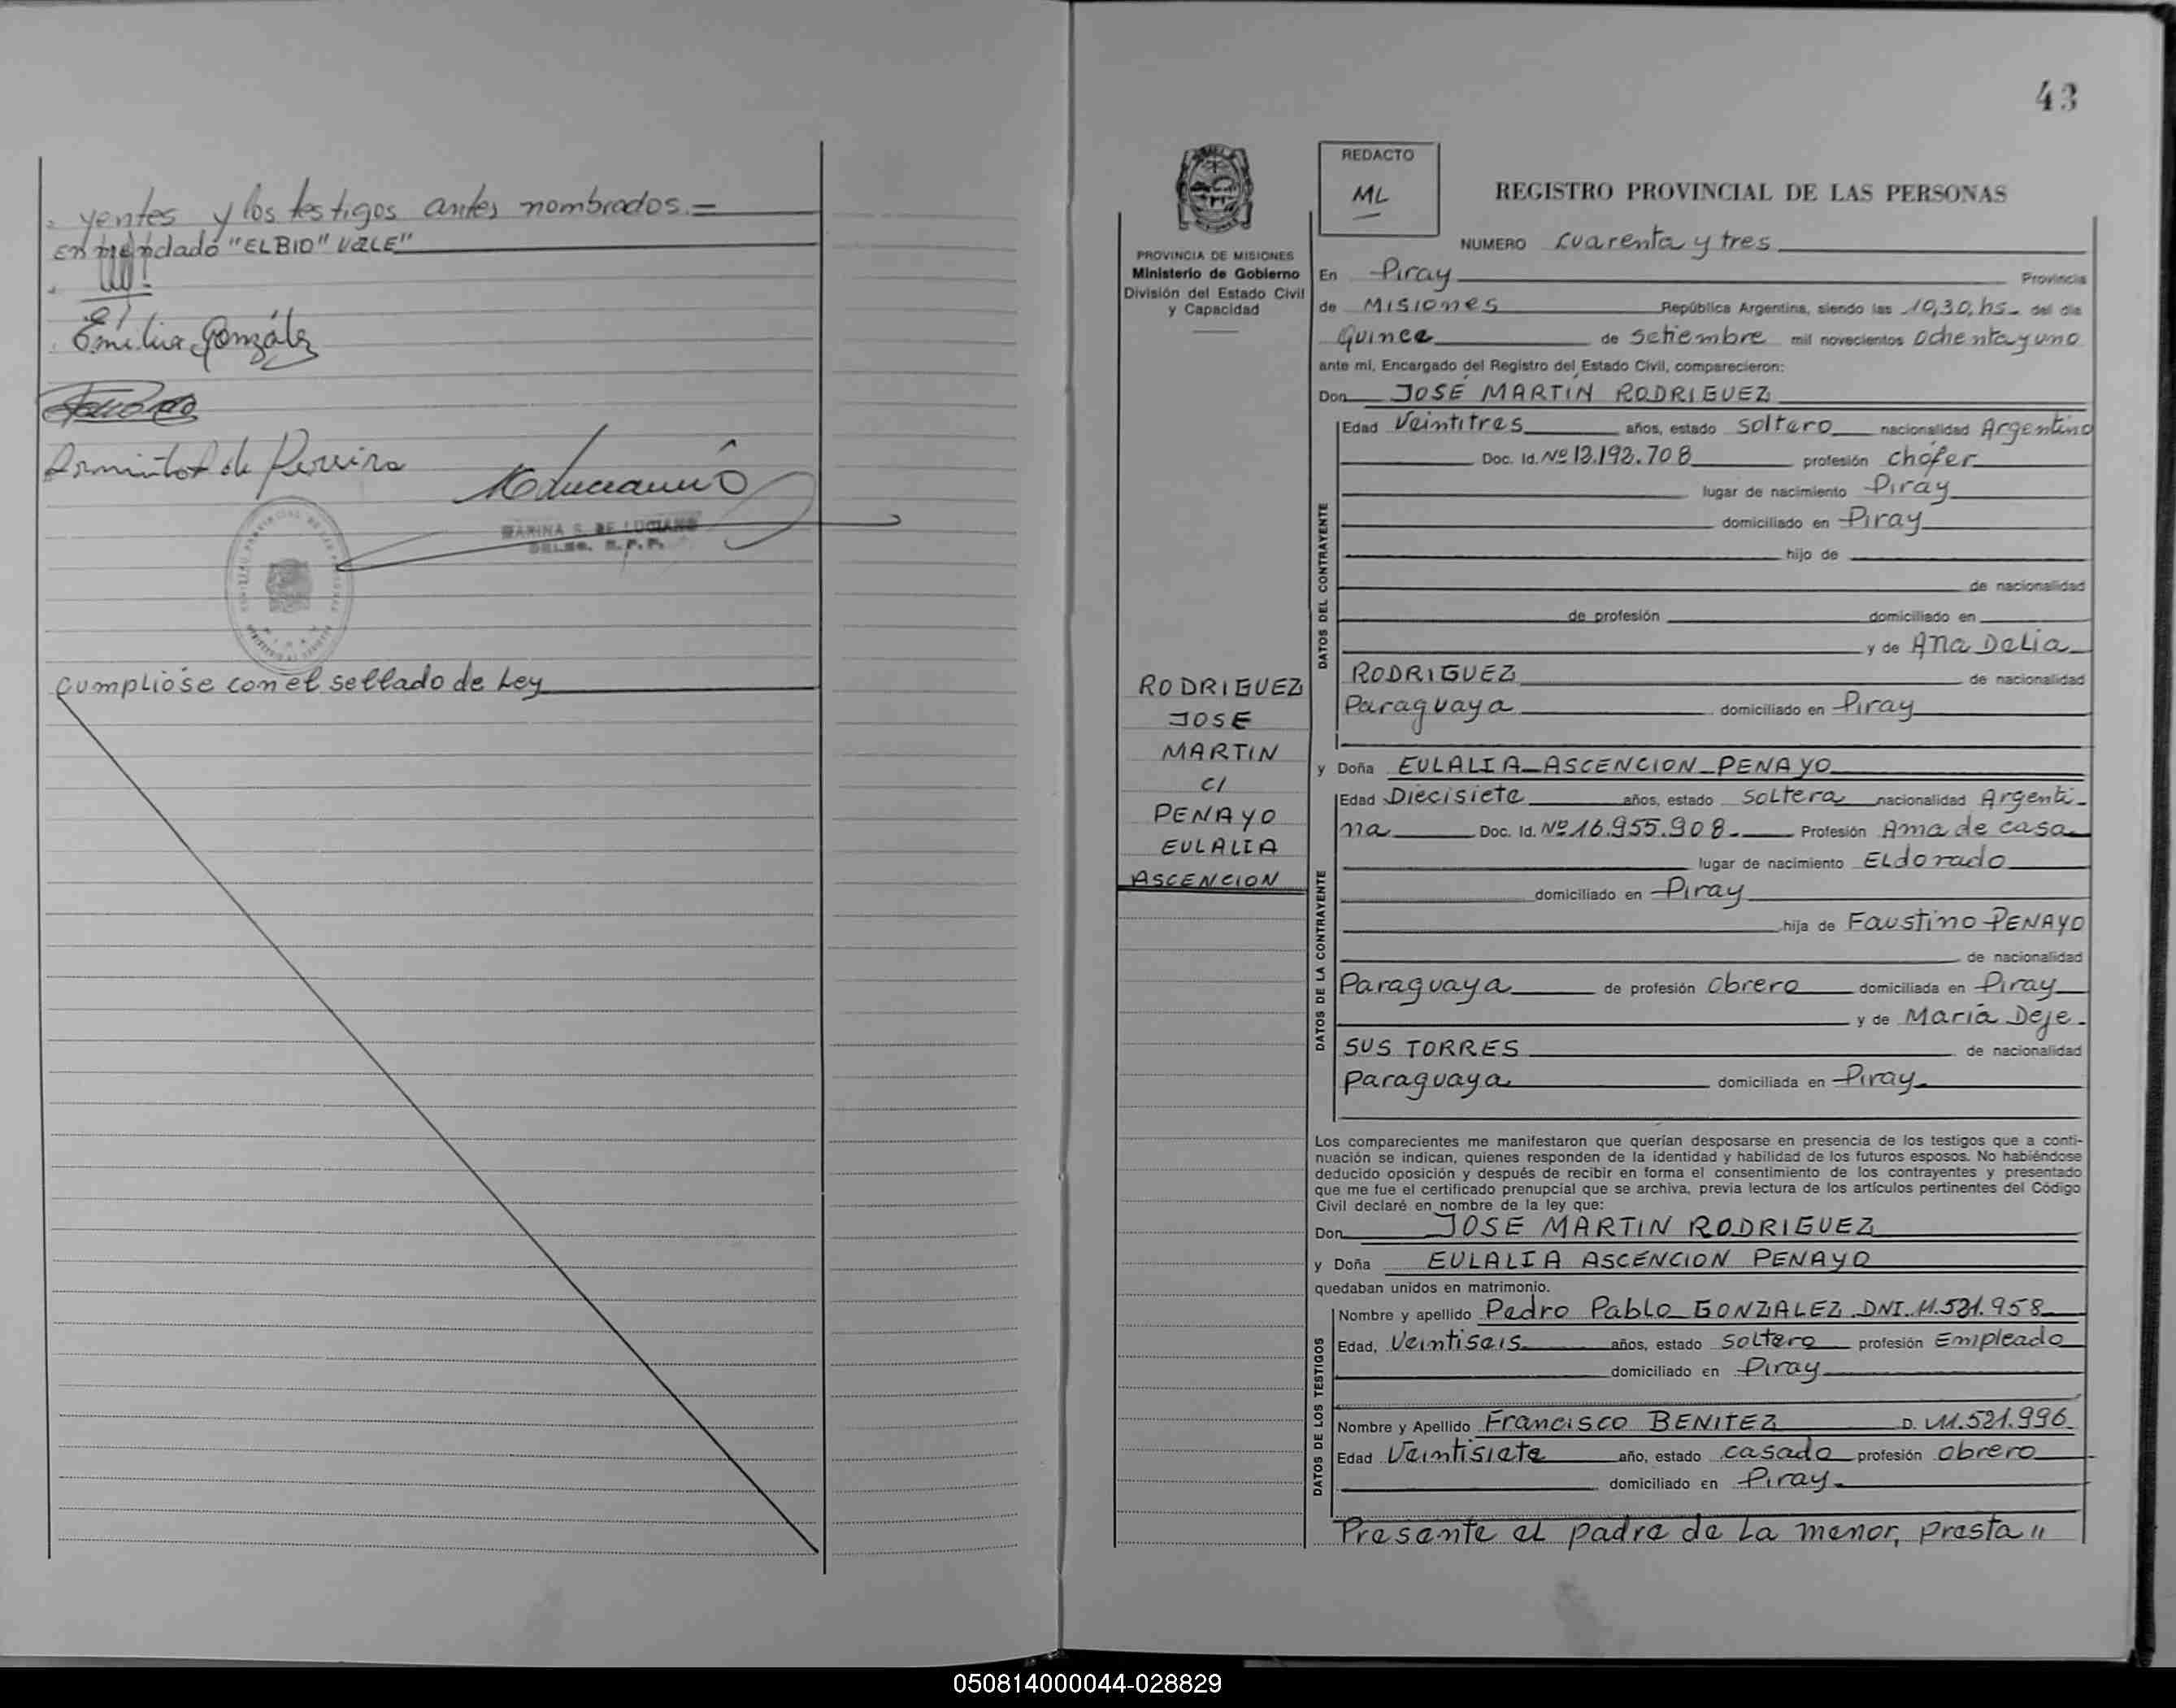 yentes y los testigos antes nombrados.=
Enmendado "ELBIO" VALE"
Emilia González
MARINA S. DE LUCIANO
DELEG. R. P. P.
Cumplióse con el sellado de Ley
43
REDACTO
ML
REGISTRO PROVINCIAL DE LAS PERSONAS
PROVINCIA DE MISIONES
Ministerio de Gobierno
División del Estado Civil
y Capacidad
RODRIGUEZ
JOSE
MARTIN
C/
PENAYO
EULALIA
ASCENCION
NUMERO cuarenta y tres
En Piray Provincia
de Misiones República Argentina, siendo las 10,30, hs- del dia
Quince de Setiembre mil novecientos ochenta y uno
ante mí, Encargado del Registro del Estado Civil, comparecieron:
Don JOSÉ MARTÍN RODRIGUEZ
DATOS DEL CONTRAYENTE
Edad Veintitres años, estado soltero nacionalidad Argentino
Doc. Id. Nº 13.193.708 profesión chófer
lugar de nacimiento Piray
domiciliado en Piray
hijo de
de nacionalidad
de profesión domiciliado en
y de Ana Delia
RODRIGUEZ de nacionalidad
Paraguaya domiciliado en Piray
y Doña EULALIA ASCENCION PENAYO
DATOS DE LA CONTRAYENTE
Edad Diecisiete años, estado soltera nacionalidad Argenti-
na Doc. Id. Nº 16.955.908- Profesión Ama de casa
lugar de nacimiento Eldorado
domiciliado en Piray
hija de Faustino PENAYO
de nacionalidad
Paraguaya de profesión obrero domiciliada en Piray
y de María Deje-
SUS TORRES de nacionalidad
Paraguaya domiciliada en Piray
Los comparecientes me manifestaron que querían desposarse en presencia de los testigos que a conti-
nuación se indican, quienes responden de la identidad y habilidad de los futuros esposos. No habiéndose
deducido oposición y después de recibir en forma el consentimiento de los contrayentes y presentado
que me fue el certificado prenupcial que se archiva, previa lectura de los artículos pertinentes del Código
Civil declaré en nombre de la ley que:
Don JOSE MARTIN RODRIGUEZ
y Doña EULALIA ASCENCION PENAYO
quedaban unidos en matrimonio.
DATOS DE LOS TESTIGOS
Nombre y apellido Pedro Pablo GONZALEZ DNI. 11.521.958
Edad, Veintiseis años, estado soltero profesión Empleado
domiciliado en Piray
Nombre y Apellido Francisco BENITEZ D. 11.521.996
Edad Veintisiete año, estado casado profesión obrero
domiciliado en Piray
Presente el padre de la menor, presta "
050814000044-028829